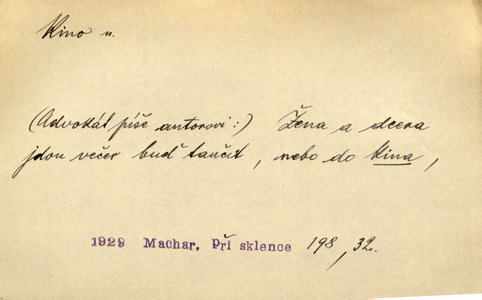 Kino n.
(Advokát píše autorovi:) Žena a dcera
jdou večer buď tančit, nebo do kina,
1929 Machar, Při sklence 198, 32.